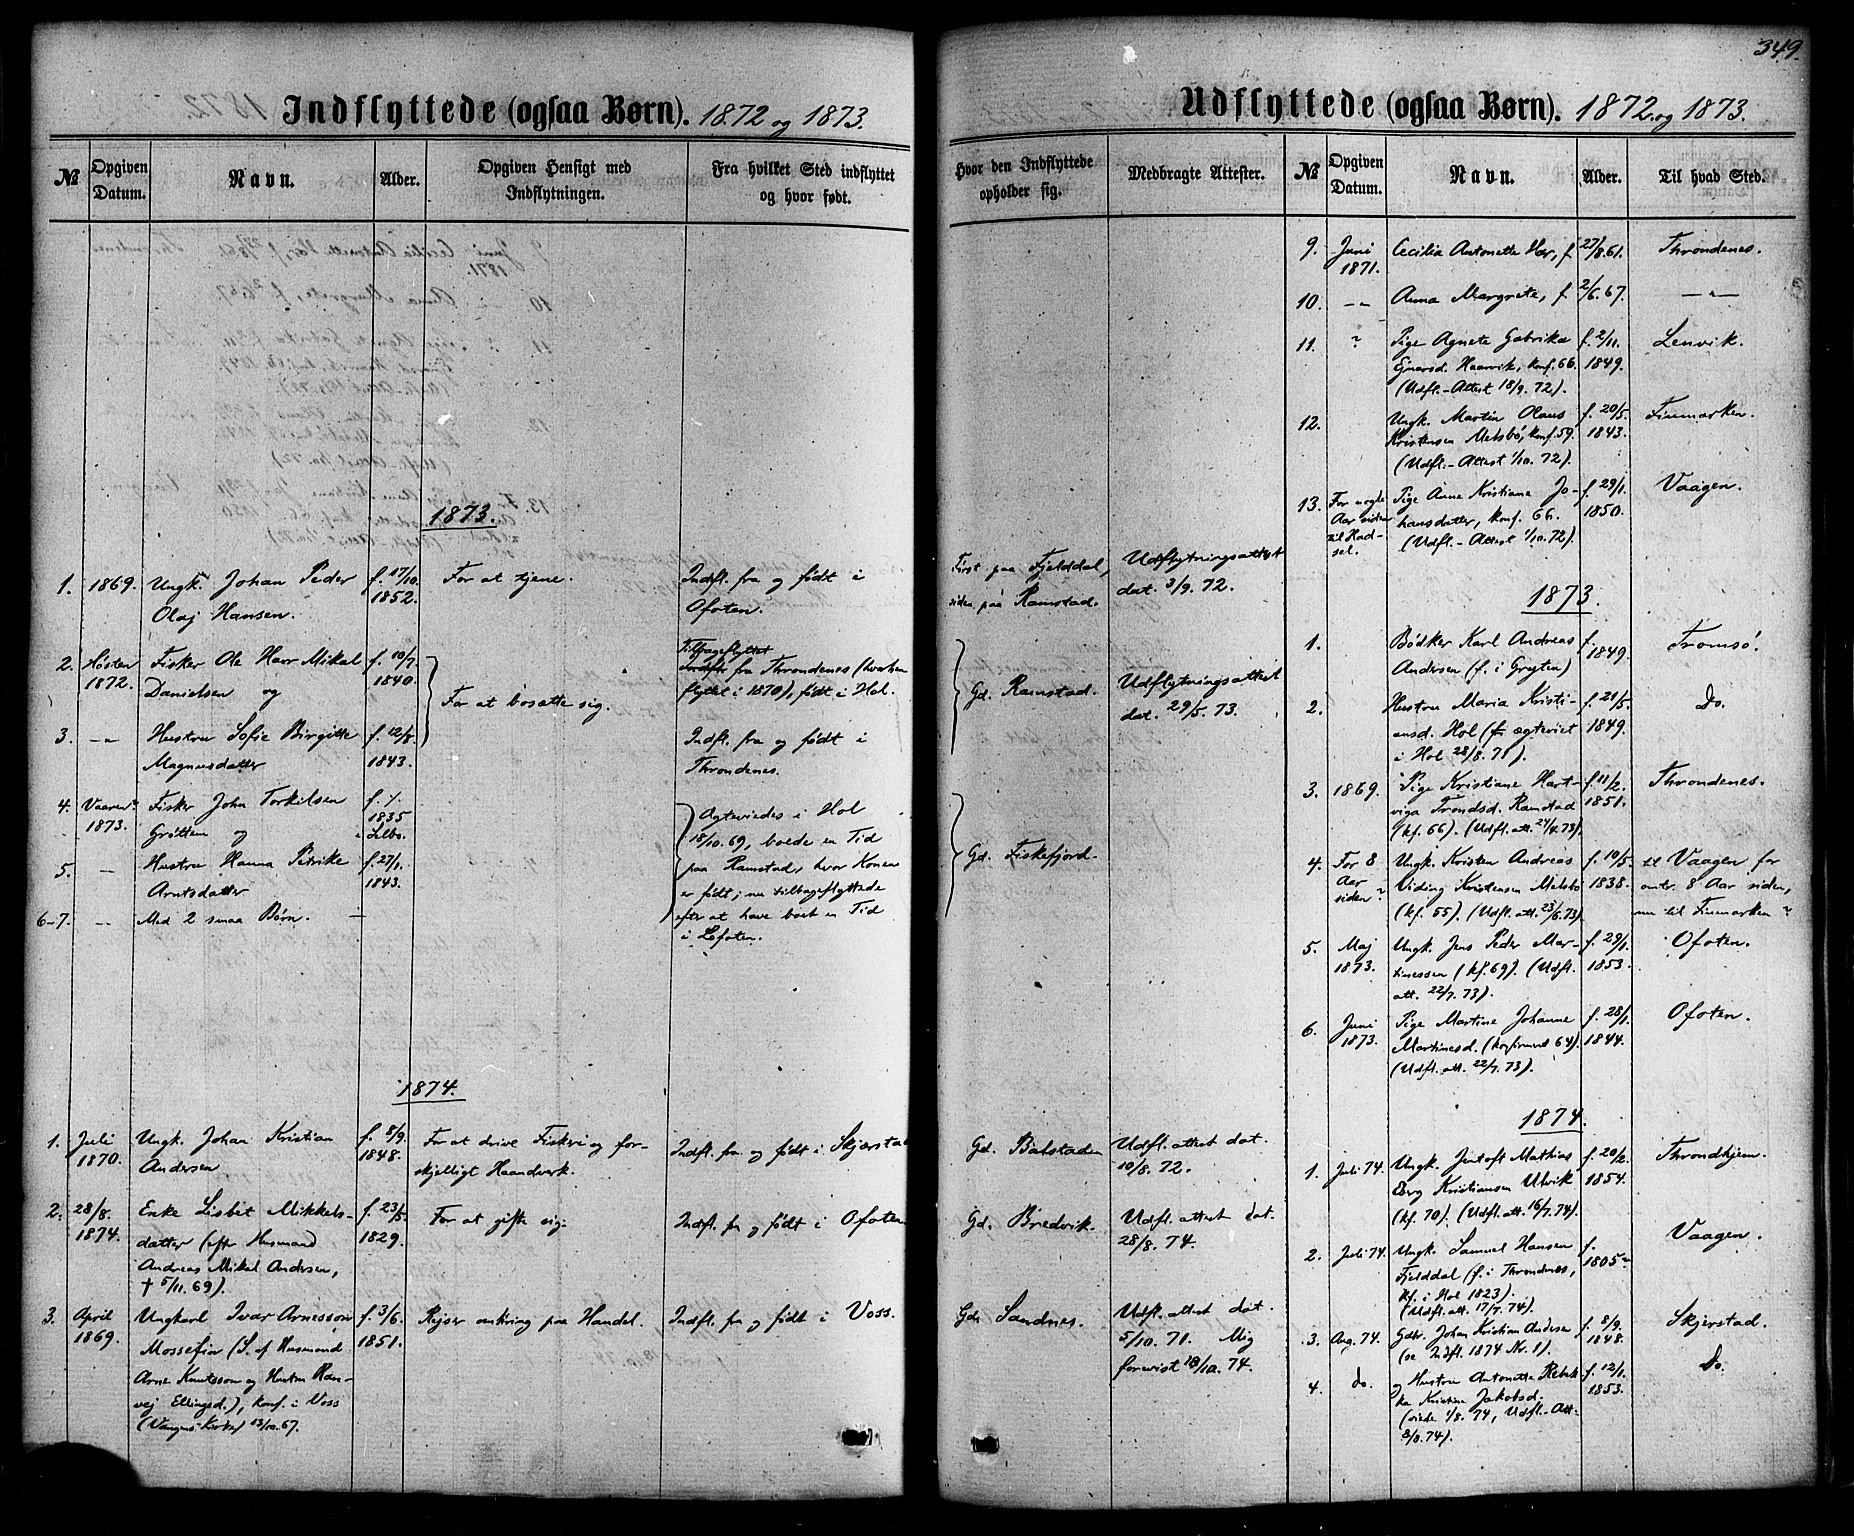 349.
Indflyttede (ogsaa Børn). 1872 og 1873.
№
Opgiven Datum.
Navn.
Alder.
Opgiven Hensigt med Indflytningen.
Fra hvilket Sted indflyttet og hvor født.
1873.
1. 1869. Ungk. Johan Peder f. 17/10. For at tjene. Indfl. fra og født i
Olaj Hansen. 1852. Ofoten.
2. Høsten Fisker Ole Harr Mikal f. 10/7. Tilbageflyttet
1872. Danielsen og 1840. fra Throndenes (hvorhen
For at bosætte sig. flyttet i 1870), født i Hol.
3. -"- Hustru Sofie Birgitte f. 12/8. Indfl. fra og født i
Magnusdatter 1843. Throndenes.
4. Vaaren 1873. Fisker John Torkilsen f. 1835 Ægteviedes i Hol
Grøtten og Selbo. 18/10.69, boede en Tid
5. — Hustru Hanna Petrike f. 27/1. paa Ramstad, hvor Konen
Arntsdatter 1843. er født; nu tilbageflyttede
6-7. -- Med 2 smaa Børn. — efter at have boet en Tid
i Lofoten.
1874.
1. Juli Ungk. Johan Kristian f. 8/9. For at drive Fiskeri og for- Indfl. fra og født i Skjerstad
1870. Andersen 1848. skjelligt Haandverk.
2. 28/8. Enke Lisbet Mikkels- f. 23/5. For at gifte sig. Indfl. fr og født i Ofoten
1874. datter (eftr Husmand 1829.
Andreas Mikal Andersen,
† 5/11.69).
3. April Ungkarl Ivar Arnesson f. 3/6. Rejser omkring paa Handel. Indfl. fr og født i Voss.
1869. Mossefin (S. af Husmand 1851.
Arne Knutsson og Hustru Ran-
vej Ellingsd.), konf. i Voss
(Vangens Kirke) 13/10.67.
Udflyttede (ogsaa Børn). 1872 og 1873.
Hvor den Indflyttede opholder sig.
Medbragte Attester.
№
Opgiven Datum.
Navn.
Alder.
Til hvad Sted.
Først paa Fjelddal, Udflytningsattest
siden paa Ramstad. dat. 3/9. 72.
Gd. Ramstad. Udflytningsattest
dat. 29/5. 73.
Gd. Fiskefjord.
Gd. Balstaden Udfl. attest dat.
10/8. 72.
Gd. Bredvik. Udfl. attest dat.
28/8. 74.
Gd. Sandnes. Udfl. attest dat.
5/10. 71. Mig
forevist 18/10. 74.
9. Juni Cecilia Antonette Har, f. 27/8.61. Throndenes.
1871.
10. -"- Anna Margrete, f. 2/6.67. —"—
11. ? Pige Agnete Gabrika f. 2/11. Lenvik.
Ejnarsd. Haarvik, konf. 66. 1849.
(Udfl.-Attest 18/9. 72).
12. Ungk. Martin Olaus f. 20/5. Finmarken.
Kristensen Melsbø, konf. 59. 1843.
(Udfl.-Attest 1/10. 72).
13. For nogle Pige Anne Kristiane Jo- f. 29/1. Vaagen.
Aar siden hansdatter, konf. 66. 1850.
til Had- (Udfl.-Attest 1/10. 72).
sel.
1873.
1. Bødker Karl Andreas f. Tromsø.
Andersen (f. i Grøten) 1849.
2. Hustru Maria Kristi- f. 21/5. Do.
ansd. Hol (ægteviet 1849.
i Hol 28/8. 71).
3. 1869. Pige Kristiane Hart- f. 11/2. Throndenes.
viga Trondsd. Ramstad 1851.
(kf. 66). (Udfl. att. 24/4.73).
4. For 8 Ungk. Kristen Andreas f. 10/5. til Vaagen for
Aar Viding Kristensen Melsbø 1838. omtr. 8 Aar siden,
siden? (kf. 55). (Udfl. att. 23/6.73). nu til Finmarken?
5. Maj Ungk. Jens Peder Mar- f. 29/1. Ofoten.
1873. tinessen (kf. 69). (Udfl. 1853.
att. 22/7. 73).
6. Juni Pige Martine Johanne f. 28/1. Ofoten.
1873. Martinesd. (konfirmeret 64). 1844.
(Udfl. att. 22/7. 73).
1874.
1. Juli 74. Ungk. Jentoft Mathias f. 20/2. Throndhjem.
Eberg Kristiansen Ulvik 1854.
(kf. 70). (Udfl. att. 16/7.74).
2. Juli 74. Ungk. Samuel Hansen f. 1805. Vaagen.
Fjelddal (f. i Throndenes,
kf. i Hol 1823).
(Udfl. att. 17/7. 74).
3. Aug. 74. Gdbr. Johan Kristian Andersen f. 8/9. Skjerstad.
(se Indfl. 1874 Nr. 1). 1848.
4. do. og Hustru Antonette Rebek- f. 12/1. Do.
ka Kristine Jakobsd. 1853.
(viede 1/8. 74, Udfl.-Att.
8/8.74).